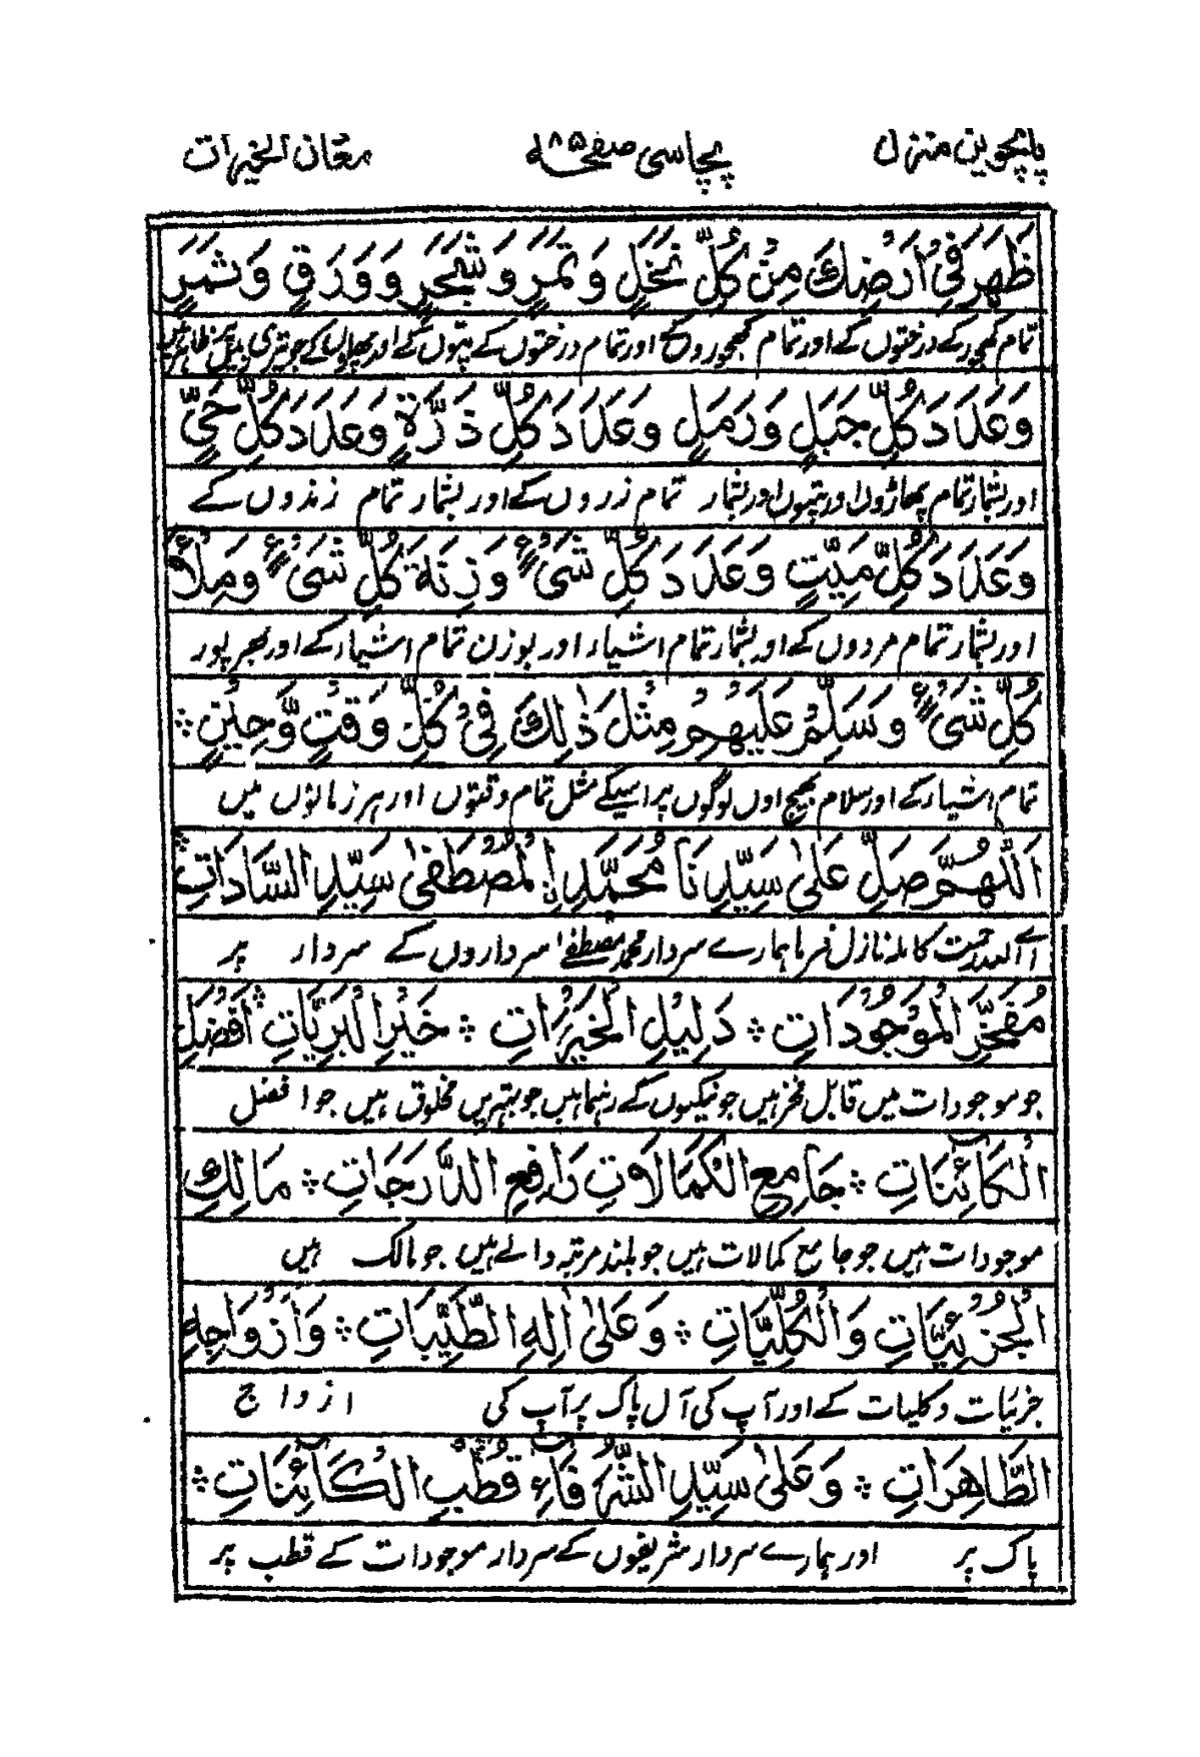 پانچویں منزل پچاسی صفحہ ۸۵ معان الخیرات
ظَهَرَ فِیْ اَرْضِكَ مِنْ كُلِّ نَخْلٍ وَ تَمَرٍ وَ شَجَرٍ وَ وَرَقٍ وَ ثَمَرٍ
تمام کھجور کے درختوں کے اور تمام کھجور و اور تمام درختوں کے پتوں کے اور پھلوں کے جو تیری زمین میں ظاہر ہیں
وَعَدَدَ كُلِّ جَبَلٍ وَ رَمَلٍ وَعَدَدَ كُلِّ ذَرَّةٍ وَعَدَدَ كُلِّ حَیٍّ
اور بشمار تمام پہاڑوں اور اور بشمار تمام زروں کے اور بشمار تمام زندوں کے
وَعَدَدَ كُلِّ مَیِّتٍ وَعَدَدَ كُلِّ شَیْءٍ وَ زِنَةَ كُلِّ شَیْءٍ وَ مِلْأَ
اور بشمار تمام مردوں کے اور بشمار تمام اشیاء اور بوزن تمام اشیاء کے اور بھرپور
كُلِّ شَیْءٍ وَ سَلِّمْ عَلَیْهِمْ مِثْلَ ذٰلِكَ فِیْ كُلِّ وَقْتٍ وَّ حِیْنٍ ؞
تمام اشیاء کے اور سلام بھیج اون لوگوں پر اسیکے مثل تمام وقتوں اور ہر زمانوں میں
اَللّٰهُمَّ صَلِّ عَلٰی سَیِّدِنَا مُحَمَّدِ اِ لْمُصْطَفٰی سَیِّدِ السَّادَاتِ ؞
اے اللہ رحمت کاملہ نازل فرما ہمارے سردار محمد مصطفےٰ سرداروں کے سردار پر
مُفَخَّرِ الْمَوْجُوْدَاتِ ؞ دَلِیْلِ الْخَیْرَاتِ ؞ خَیْرِ الْبَرِیَّاتِ ؞ اَفْضَلِ
جو موجودات میں قابل فخر ہیں جو نیکیوں کے رہنما ہیں جو بہتریں مخلوق ہیں جو افضل
الْكَآئِنَاتِ ؞ جَامِعِ الْكَمَالَاتِ رَافِعِ الدَّرَجَاتِ ؞ مَالِكِ
موجودات ہیں جو جامع کمالات ہیں جو بلند مرتبہ والے ہیں جو مالک ہیں
الْجُزْئِیَّاتِ وَالْكُلِّیَّاتِ ؞ وَعَلٰی اٰلِهِ الطَّیِّبَاتِ ؞ وَ اَزْوَاجِهِ
جزئیات و کلیات کے اور آپ کی آل پاک پر آپ کی ازواج
الطَّاهِرَاتِ ؞ وَعَلٰی سَیِّدِ الشُّرَفَآءِ قُطْبِ الْكَآئِنَاتِ ؞
پاک پر اور ہمارے سردار شریفوں کے سردار موجودات کے قطب پر